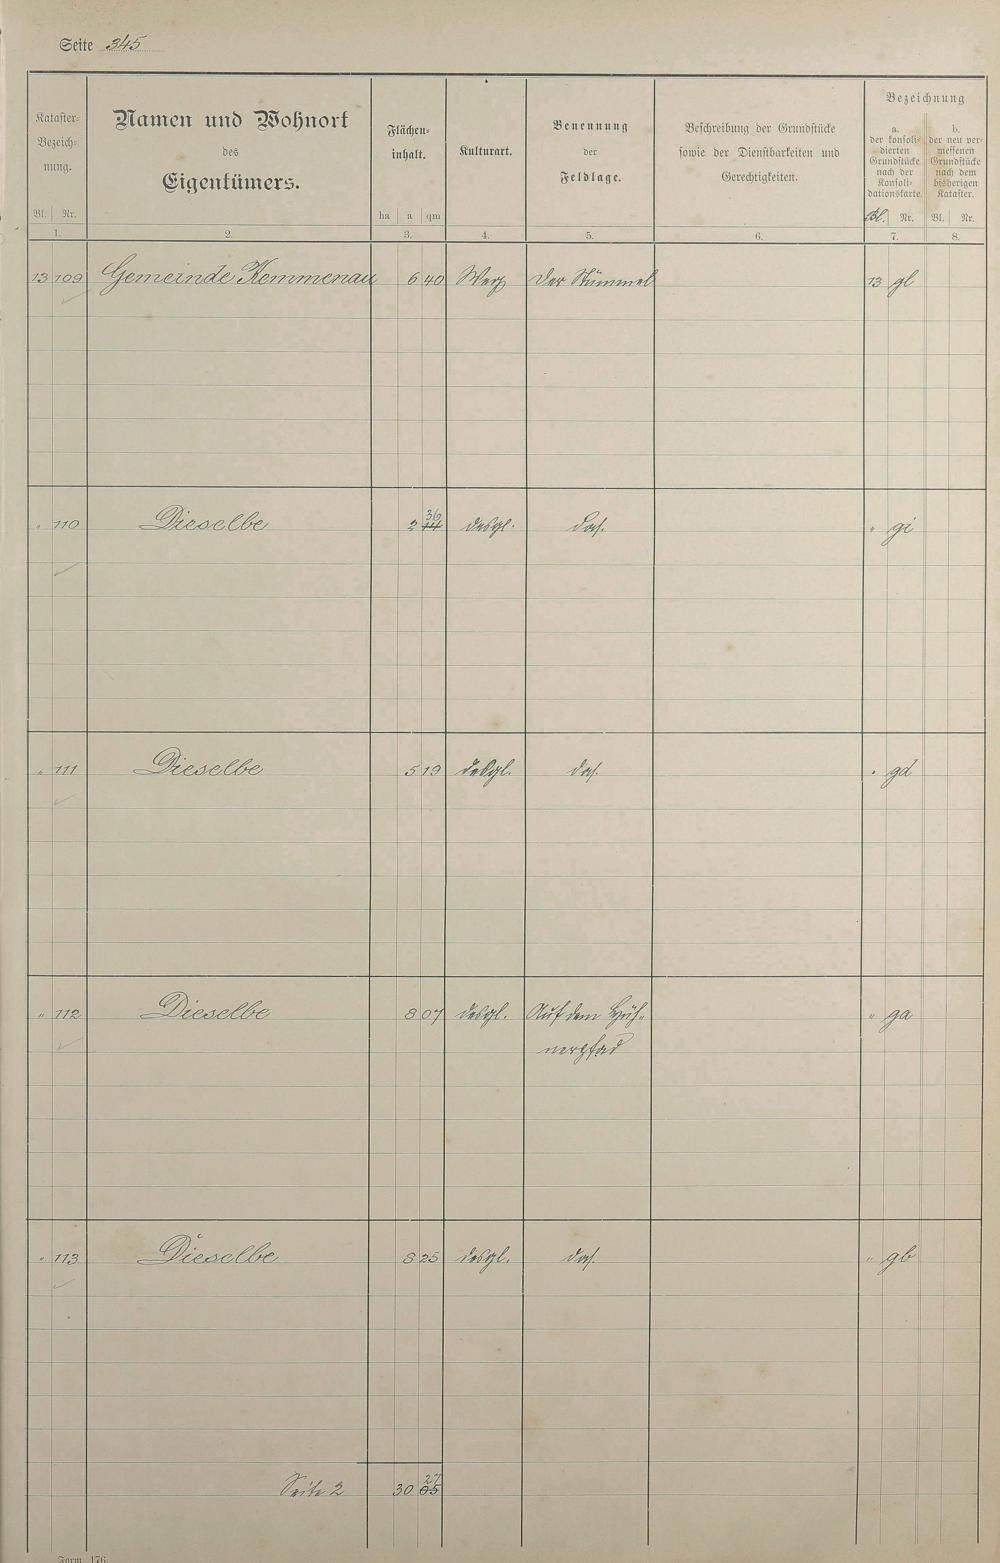 Seite 345
Kataster-
Bezeich-
nung.
Namen und Wohnort
des
Eigentümers.
Flächen-
inhalt.
Kulturart.
Benennung
der
Feldlage.
Beschreibung der Grundstücke
sowie der Dienstbarkeiten und
Gerechtigkeiten.
Bezeichnung
a.
der konsoli-
dierten
Grundstücke
nach der
Konsoli-
dationskarte.
b.
der neu ver-
messenen
Grundstücke
nach dem
bisherigen
Kataster.
Bl. Nr. ha a qm Bl. Nr. Bl. Nr.
1. 2. 3. 4. 5. 6. 7. 8.
13 109 Gemeinde Kemmenau 6 40 Weg Der Stümmel 13 gl
36
" 110 Dieselbe 2 44 desgl. das. " gi
" 111 Dieselbe 5 19 desgl. das. " gd
" 112 Dieselbe 8 07 desgl. Auf dem Hüh- " ga
nerpfad
" 113 Dieselbe 8 25 desgl. das. " gb
27
Seite 2 30 05
Form. 176.